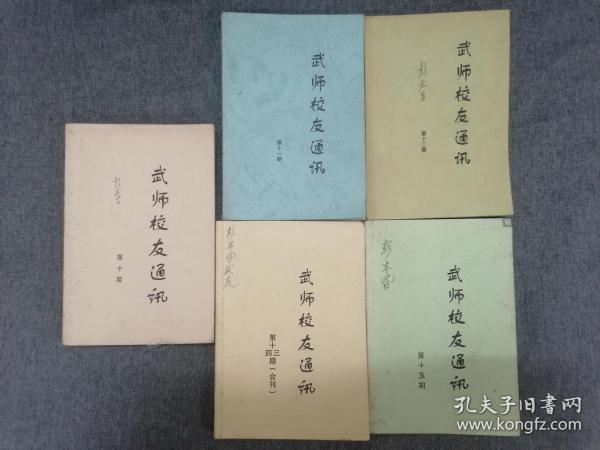 武师校友通讯
第十期
武师校友通讯
第十一期
武师校友通讯
第十二期
武师校友通讯
第十三
四期（合刊）
武师校友通讯
第十五期
孔夫子旧书网
www.kongfz.com